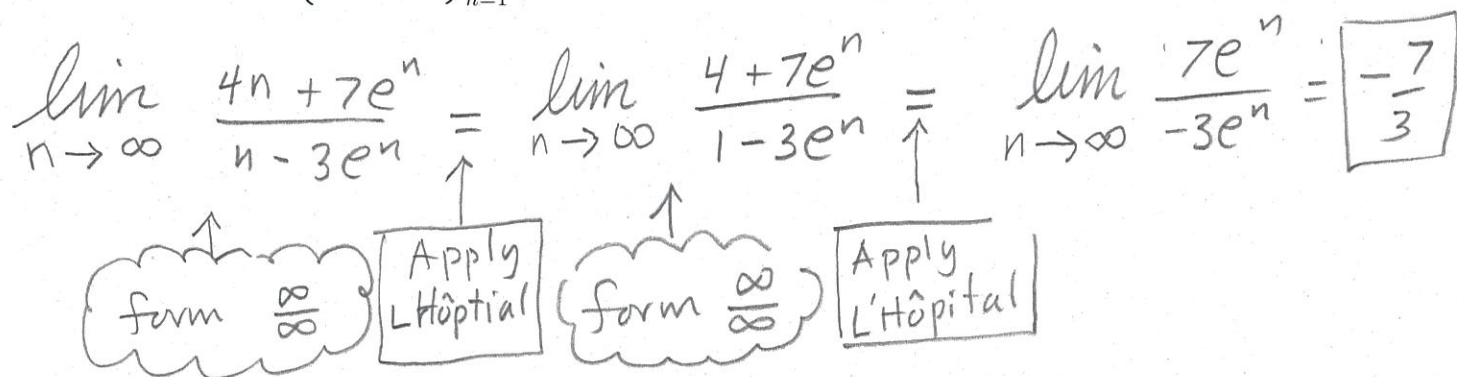 n=1
lim n→∞ (4n + 7e^n)/(n - 3e^n) = lim n→∞ (4 + 7e^n)/(1 - 3e^n) = lim n→∞ 7e^n/(-3e^n) = -7/3
form ∞/∞
Apply
LHôptial
form ∞/∞
Apply
L'Hôpital